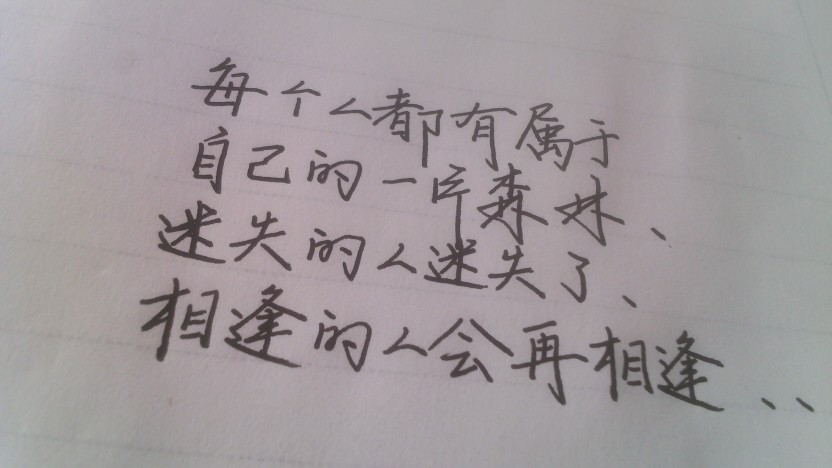 每个人都有属于
自己的一片森林、
迷失的人迷失了、
相逢的人会再相逢、、